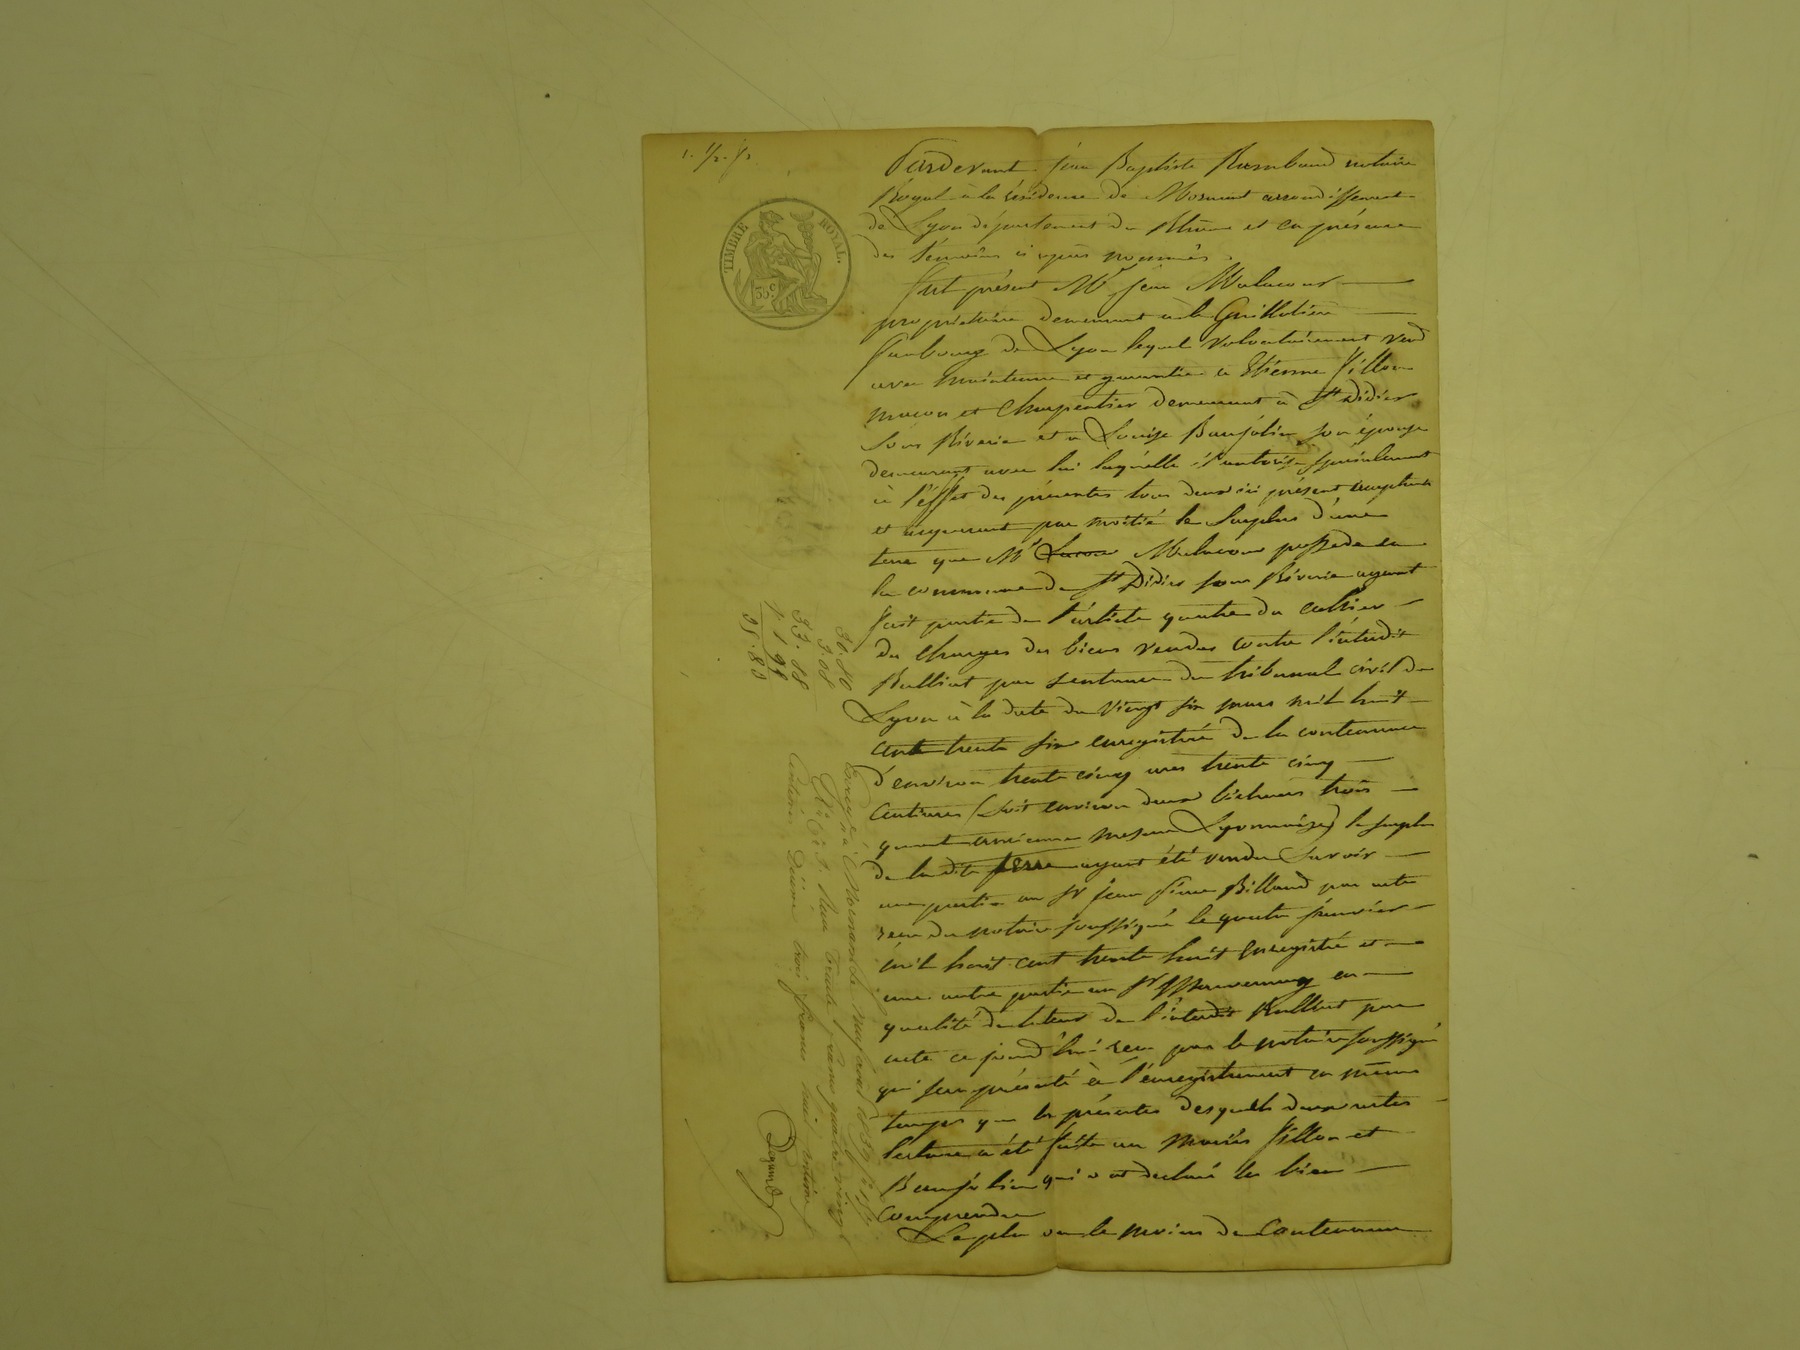 1. 1/2. 1/2
TIMBRE ROYAL.
35 c.
Pardevant Jean Baptiste Rambaud notaire
Royal à la résidence de Mornant arrondissement
de Lyon département du Rhône et en présence
des témoins ci après nommés.
fut présent Mr Jean Malacour
propriétaire demeurant à la Guillotière
faubourg de Lyon lequel volontairement vend
avec maintenue et garantie à Etienne Villon
maçon et charpentier demeurant à St Didier
sous Riverie et à Louise Banjolin son épouse
demeurant avec lui laquelle il autorise spécialement
à l'effet des présentes tous deux ici présent acceptant
et acquerant par moitié le surplus d'une
terre que Mr Malacour possède en
la commune de St Didier sous Riverie ayant
fait partie de l'article quatre du cahier
des charges des biens vendus contre l'interdit
Rulliat par sentence du tribunal civil de
Lyon à la date du vingt six mars mil huit
cent trente six enregistrée de la contenance
d'environ trente cinq ares trente cinq
centiares (soit environ deux bicherées trois
quart ancienne mesure Lyonnaise) le surplus
de la dite terre ayant été vendu savoir
une partie au Sr Jean Pierre Billaud par acte
reçu du notaire soussigné le quatre janvier
mil huit cent trente huit enregistré et
une autre partie au Sr en
qualité de tuteur de l'interdit Rulliat par
acte ce jourd'hui reçu par le notaire soussigné
qui sera présenté à l'enregistrement en même
temps que les présentes desquels deux actes
lecture a été faite aux mariés Villon et
Banjolin qui ont déclaré les bien
comprendre
Le plus ou le moins de contenance
30.80
3.08
33.88
1.98
35.80
Enregistré à Mornant le neuf avril 1839 fo
Reçu trente francs quatre vingt
centimes, Décime trois francs huit centimes